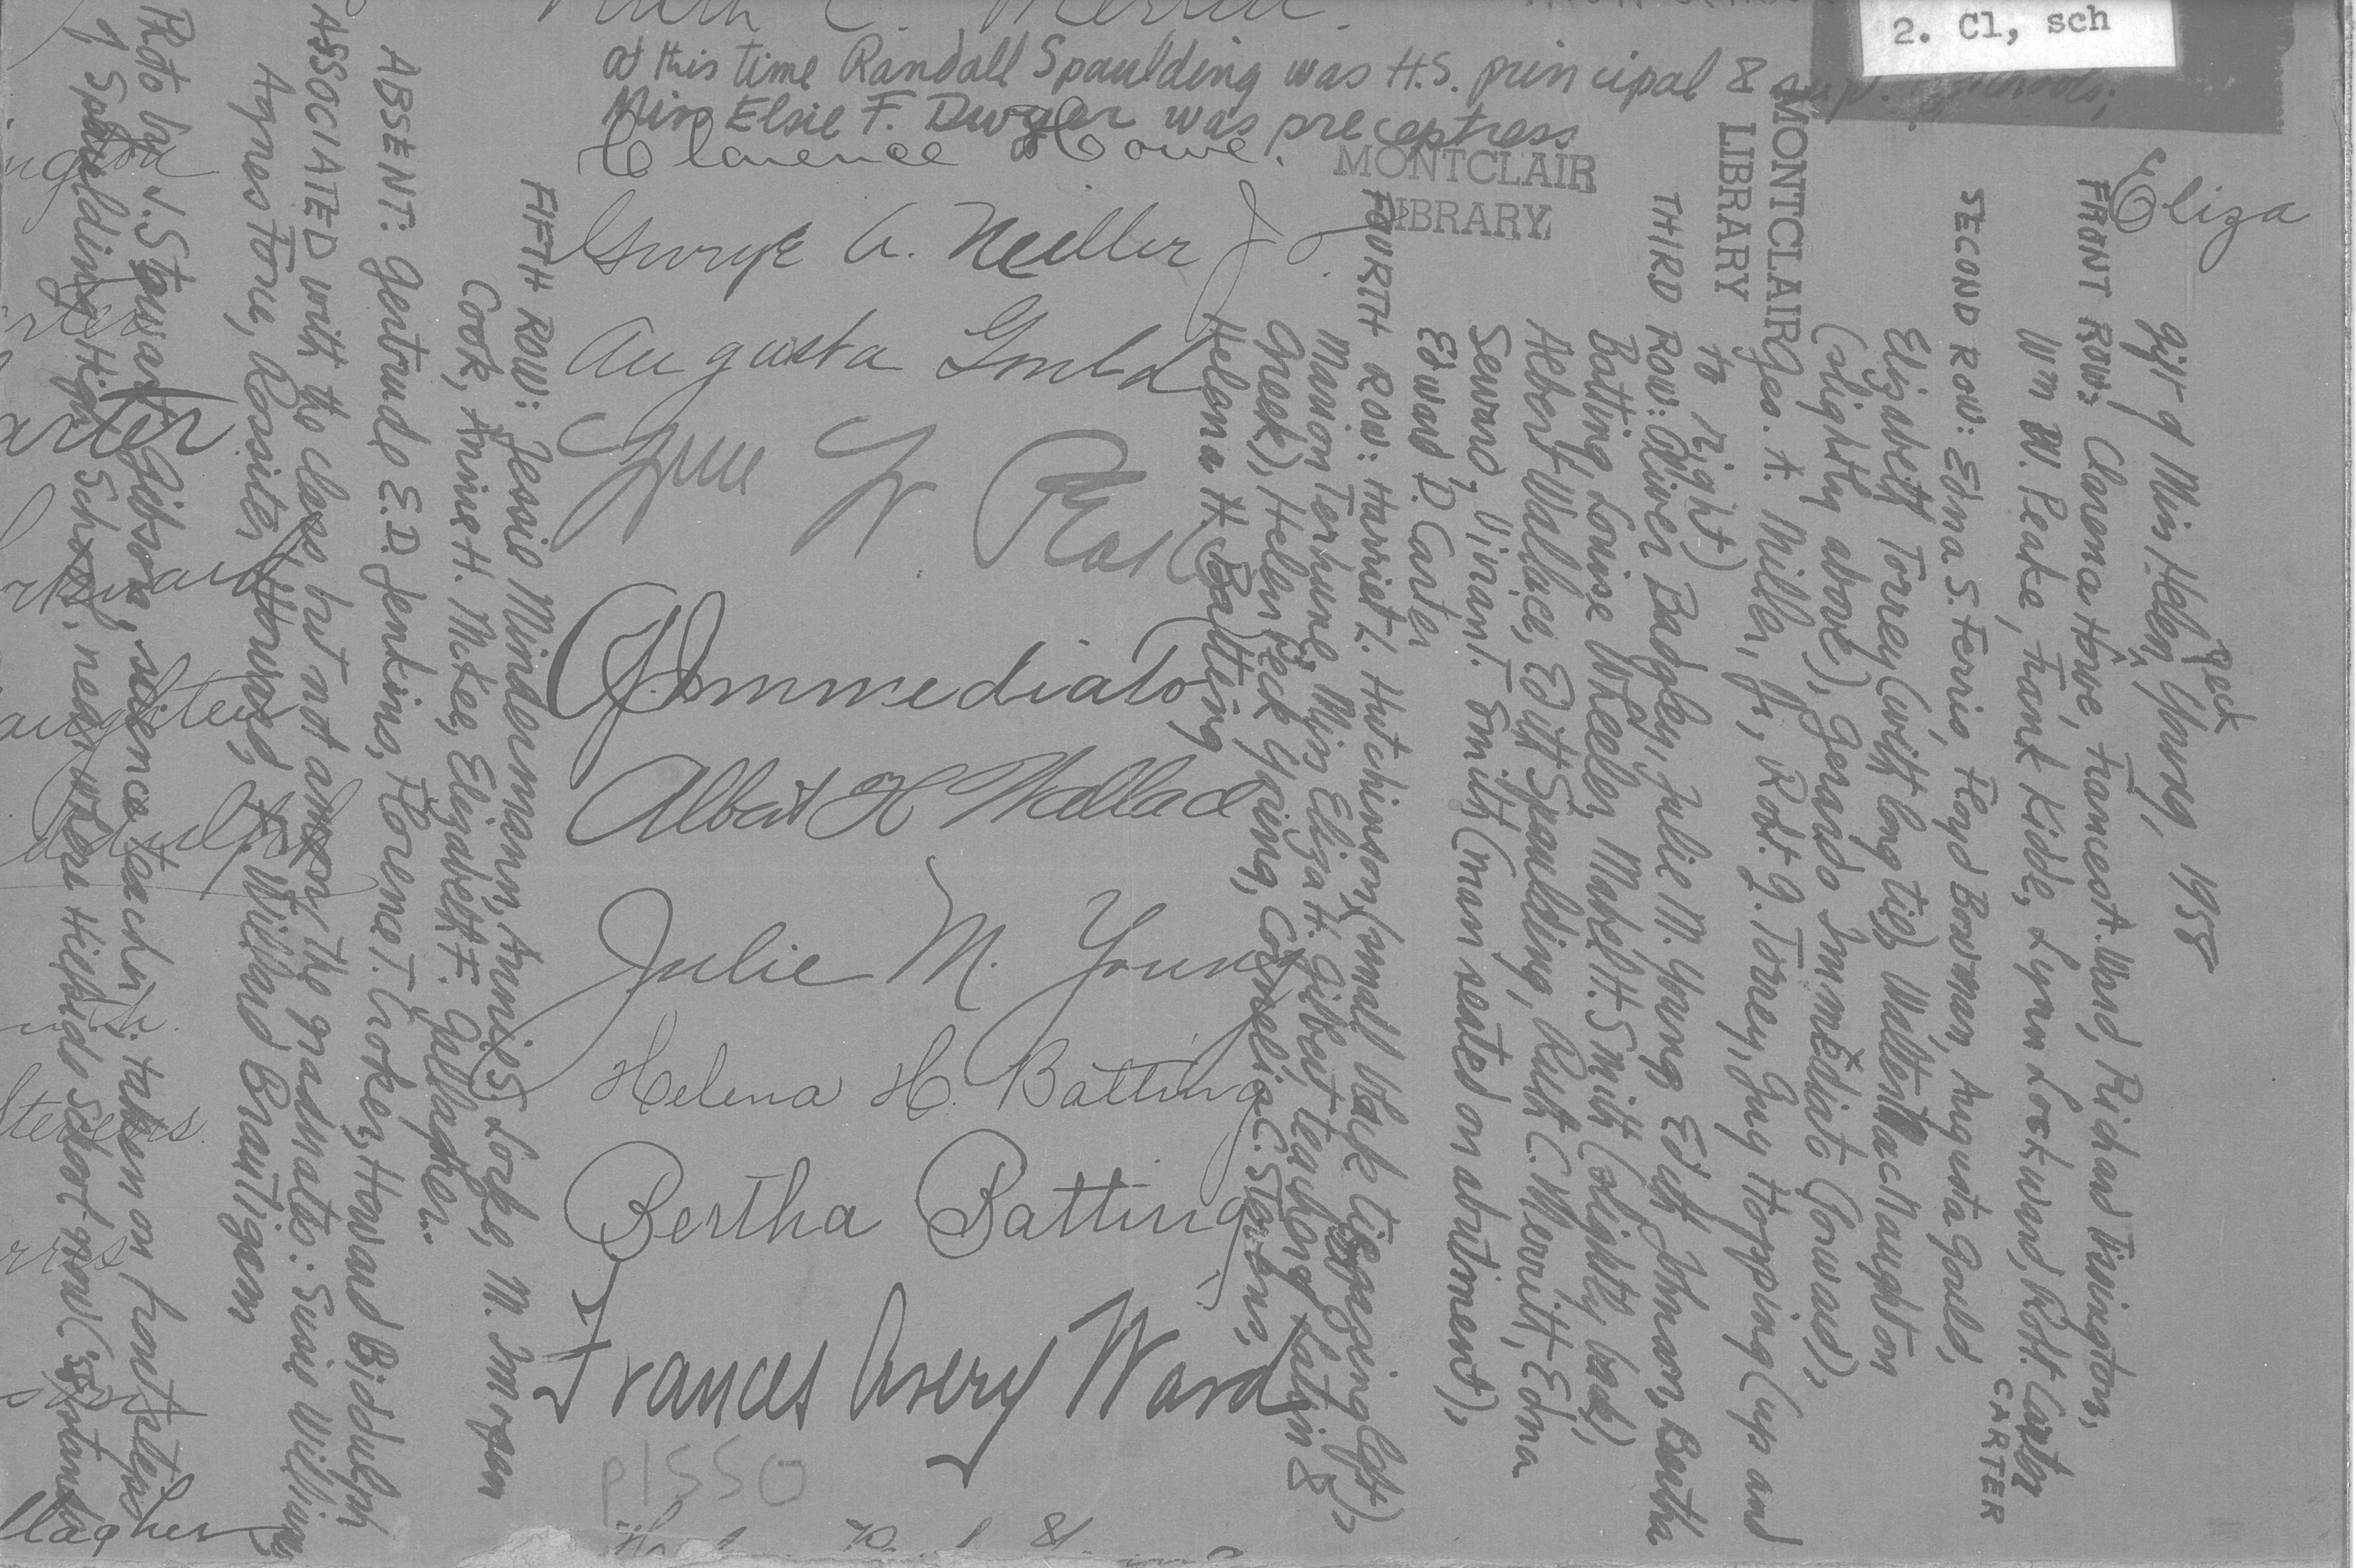 2. Cl, sch
Ruth C. Merritt.
at this time Randall Spaulding was H.S. principal & sup. schools;
Miss Elsie F. Dwyer was preceptress
Clarence Howe.
MONTCLAIR
LIBRARY
George A. Miller Jr.
Augusta Gould
G. Immediato
Albert H Wallace
Julie M. Young
Helena H. Batting
Bertha Batting
Frances Avery Ward
p1550
Eliza
gift of Miss Helen Peck Young, 1958
FRONT ROW: Clarence Howe, Frances A. Ward, Richard
Wm W. Peake, Frank Kidde, Lynn Lockward, Robt. Carter
CARTER
SECOND ROW: Edna S. Ferris, Floyd Bowman, Augusta Gould,
Elizabeth Torrey (with long tie), Walter MacNaughton
(slightly above), Gerardo Immediato (forward),
Geo. A. Miller, Jr., Robt. G. Torrey, Guy Hopping (up and
to right)
MONTCLAIR
LIBRARY
THIRD ROW: Oliver Badgley, Julie M. Young, Edith Johnson, Bertha
Batting, Louise Wheeler, Mabel H. Smith (slightly back),
Albert Wallace, Edith Spaulding, Ruth C. Merritt, Edna
Seward, T. Smith (man seated on abutment),
Edward D. Carter
FOURTH ROW: Harriet L. Hutchinson (small dark tie, left),
Marion Terhune, Miss Eliza H. Gilbert (teacher of Latin &
Greek), Helen Peck Young, Cornelia C. Stevens,
Helena H. Batting
FIFTH ROW: Jessie Mindermann, Annie S. M. Imogen
Cook, Annie H. McKee, Elizabeth F. Gallagher.
ABSENT: Gertrude E.D. Jenkins, Florence T. Croker, Howard Biddulph
ASSOCIATED with the class but not among the graduates: Susie Williams
Agnes Tone, Rossiter Howard, Willard Brautigam
Photo by J. Stewart Gibson, science teacher; taken on front steps
of Spaulding High School, near where Hillside School now stands
arter
Stevens
llagher